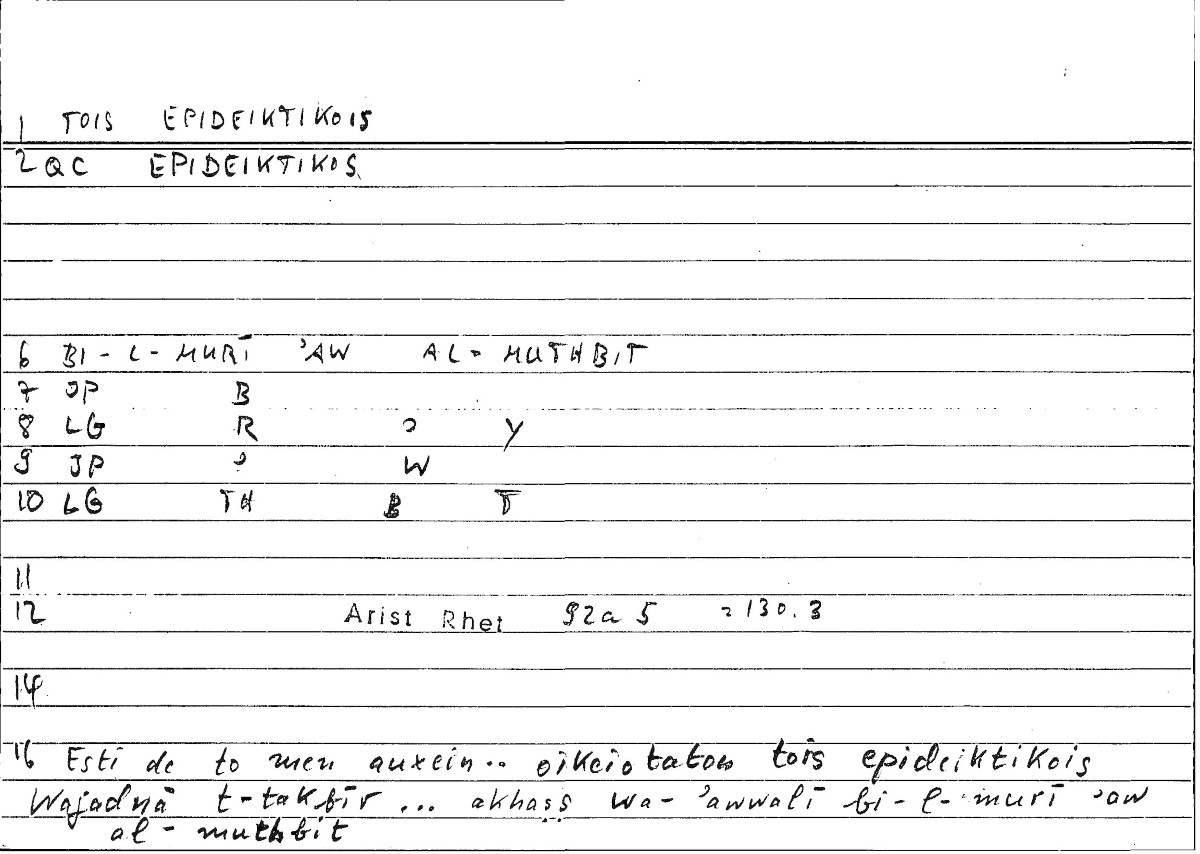 1 TOIS EPIDEIKTIKOIS
2 QC EPIDEIKTIKOS
6 BI-L-MURĪ ʾAW AL-MUTHBIT
7 JP B
8 LG R ʾ Y
9 JP ʾ W
10 LG TH B T
11
12 Arist Rhet 92a 5 = 130.3
14
16 Esti de to men auxein.. oikeiotaton tois epideiktikois
Wajadnā t-takbīr ... akhaṣṣ wa-ʾawwalī bi-l-murī ʾaw
al-muthbit